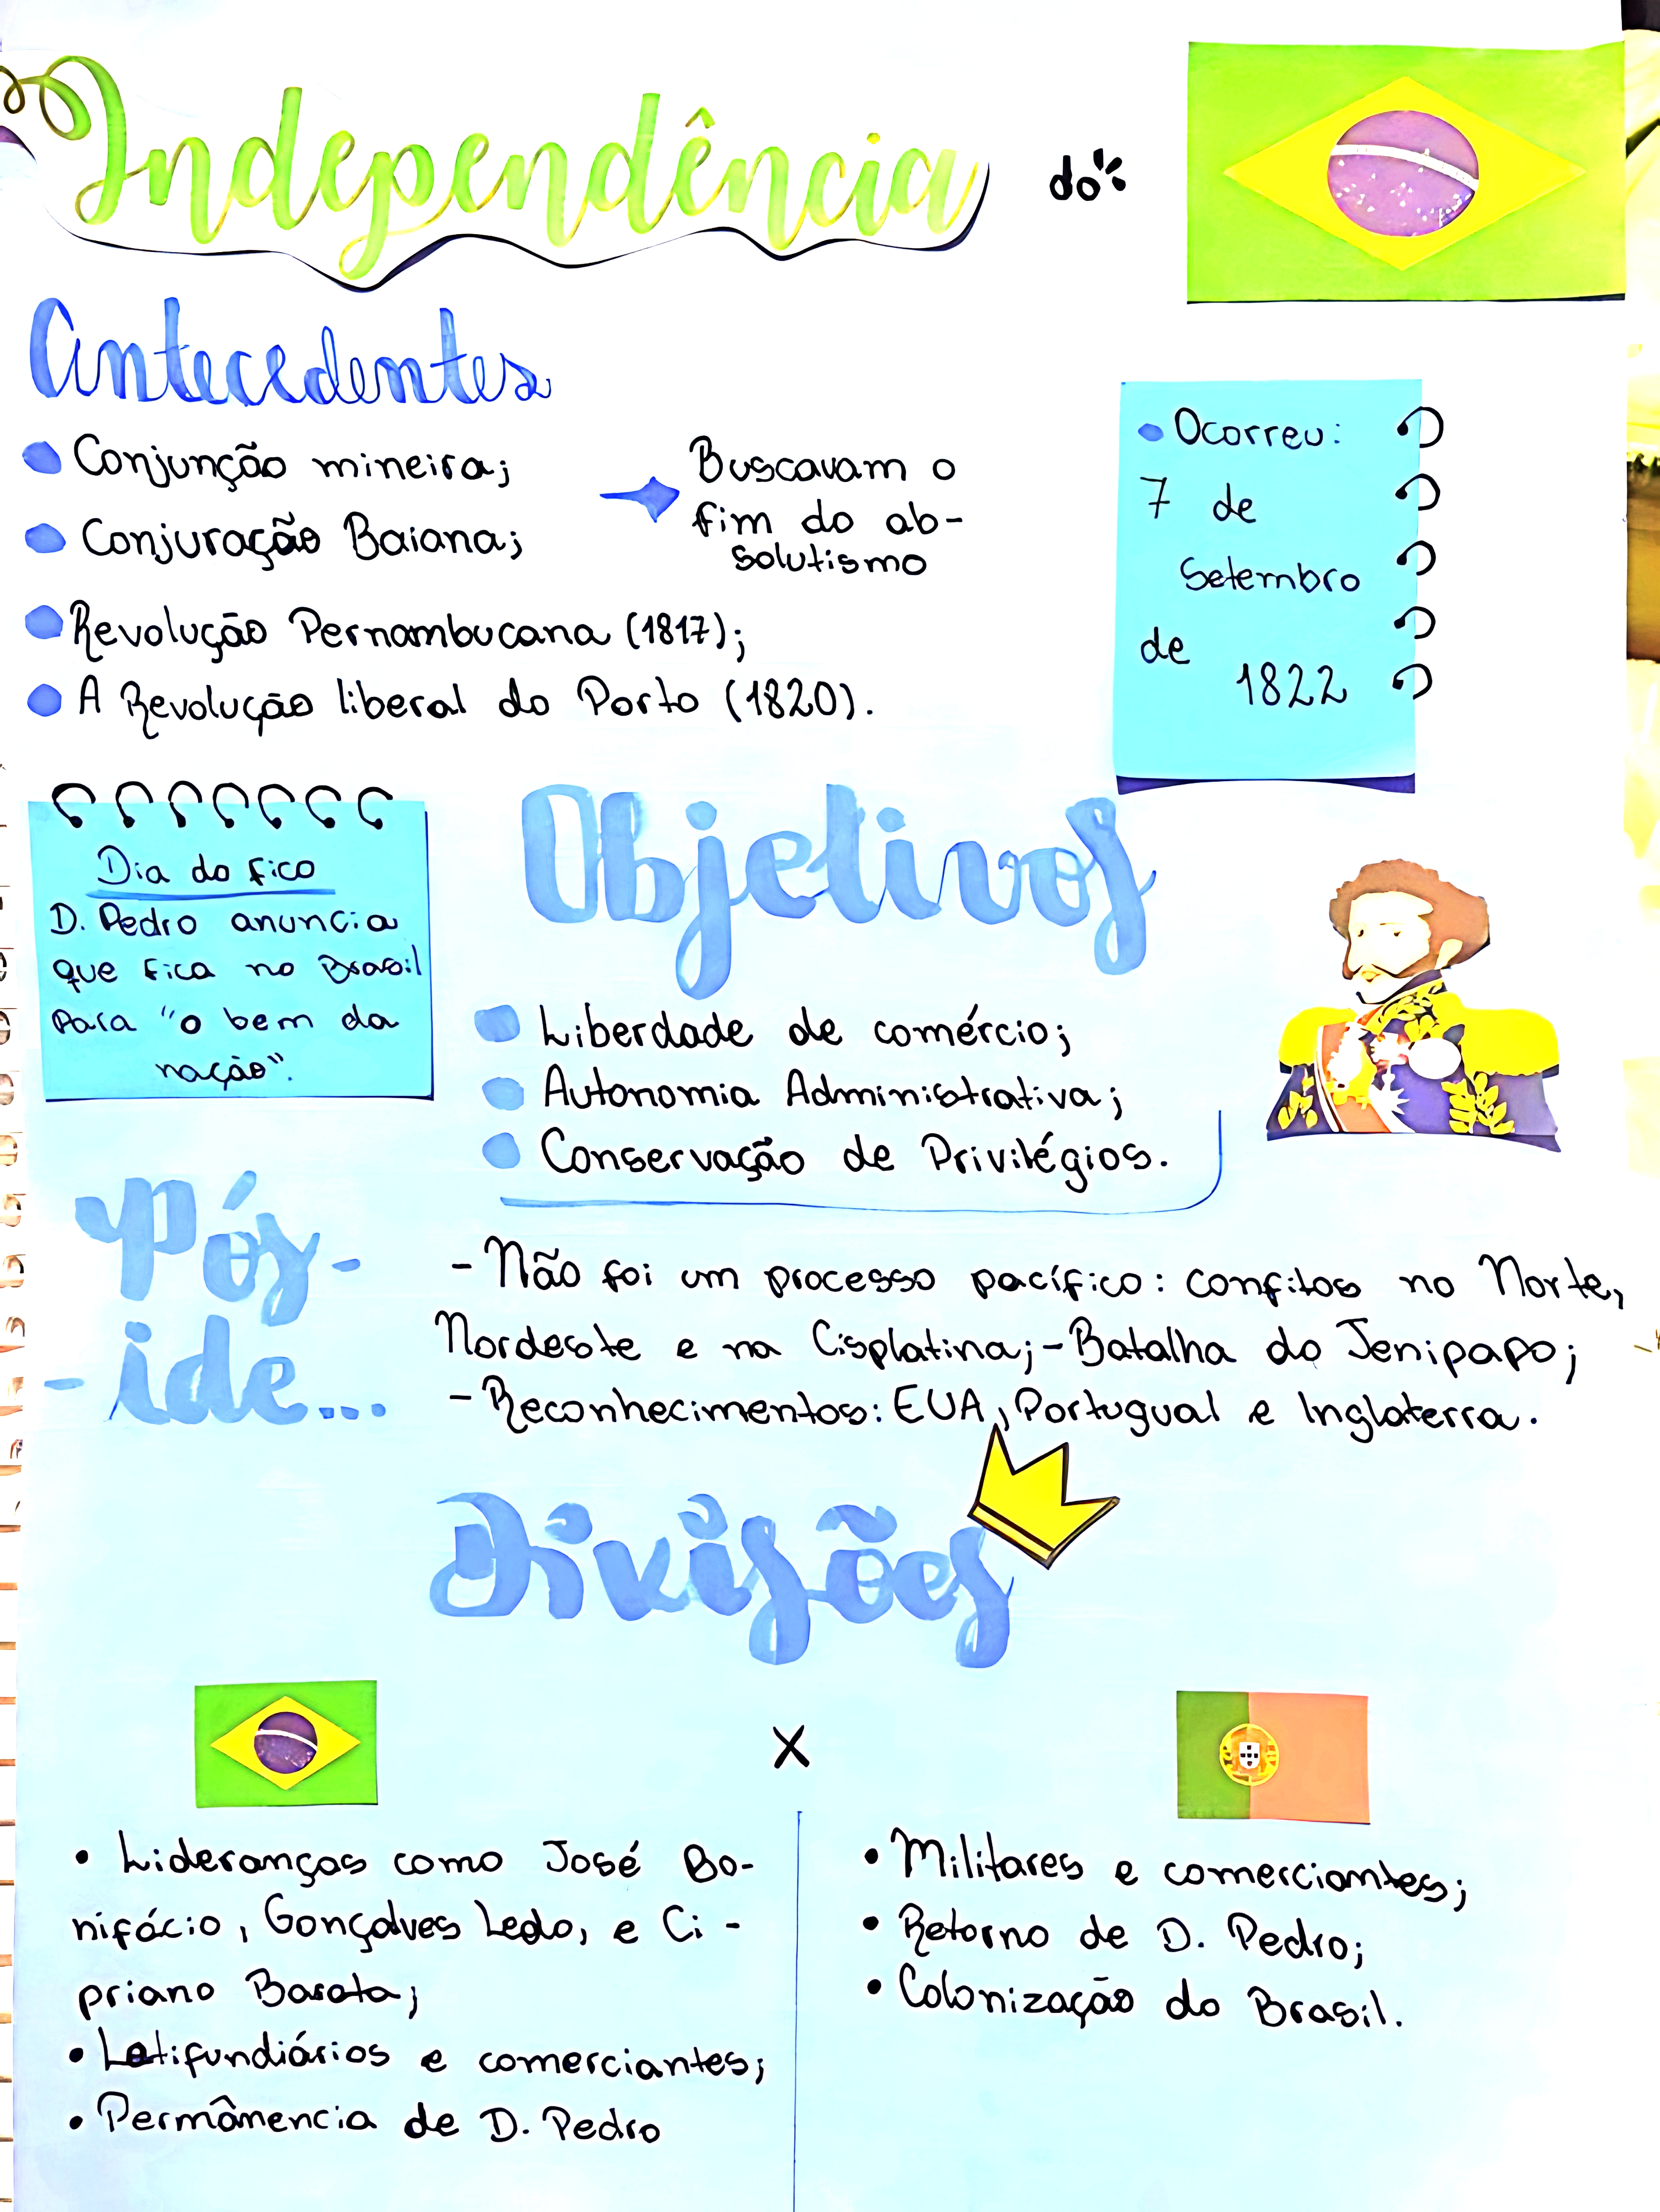 Independência do
Antecedentes
Conjunção mineira;
Conjuração Baiana;
Buscavam o
fim do ab-
solutismo
Revolução Pernambucana (1817);
A Revolução liberal do Porto (1820).
Ocorreu:
7 de
Setembro
de
1822
Dia do fico
D. Pedro anuncia
que fica no Brasil
Para "o bem da
nação".
Objetivos
Liberdade de comércio;
Autonomia Administrativa;
Conservação de Privilégios.
Pós-
-ide...
- Não foi um processo pacífico: confitos no Norte,
Nordeste e na Cisplatina; - Batalha do Jenipapo;
- Reconhecimentos: EUA, Portugual e Inglaterra.
Divisões
X
• Lideranças como José Bo-
nifácio, Gonçalves Ledo, e Ci-
priano Barata;
• Latifundiários e comerciantes;
• Permânencia de D. Pedro
• Militares e comerciantes;
• Retorno de D. Pedro;
• Colonização do Brasil.